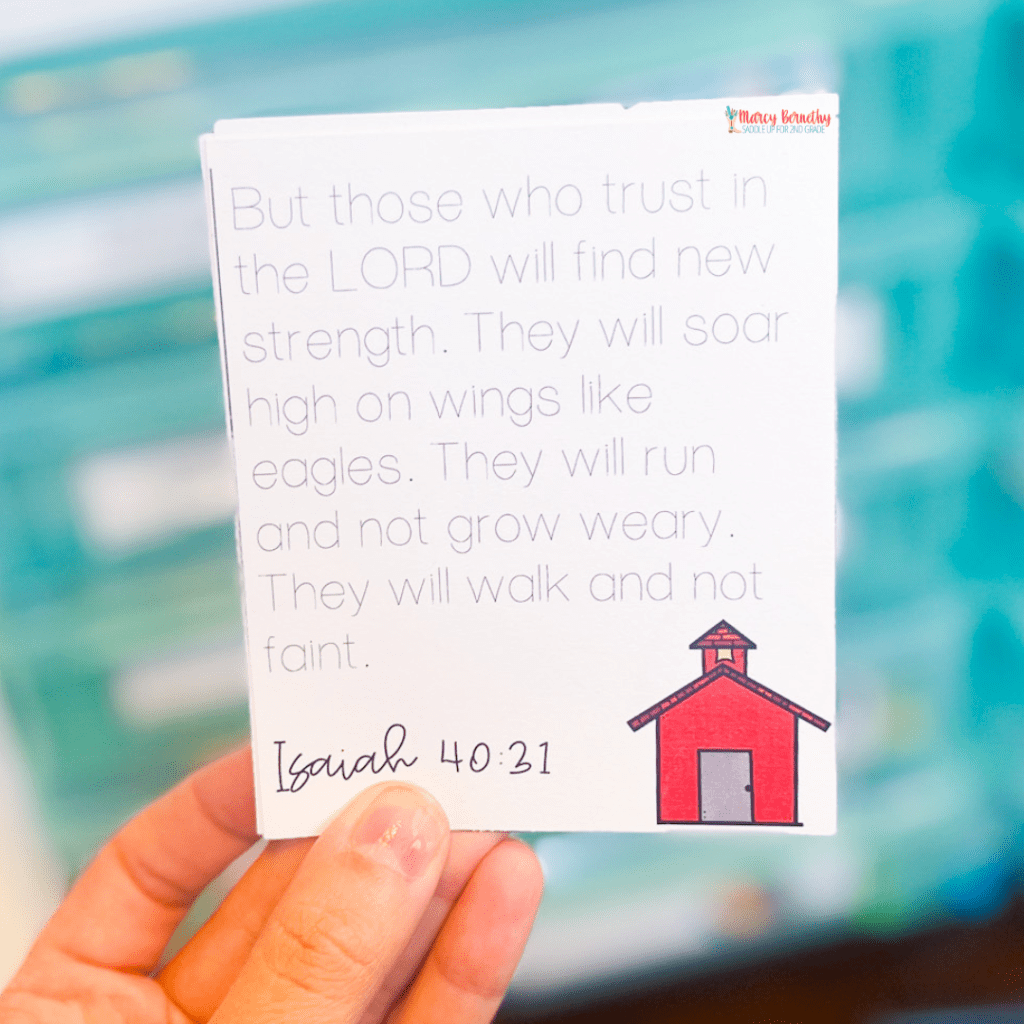 Marcy Bernethy
SADDLE UP FOR 2ND GRADE
But those who trust in
the LORD will find new
strength. They will soar
high on wings like
eagles. They will run
and not grow weary.
They will walk and not
faint.
Isaiah 40:31